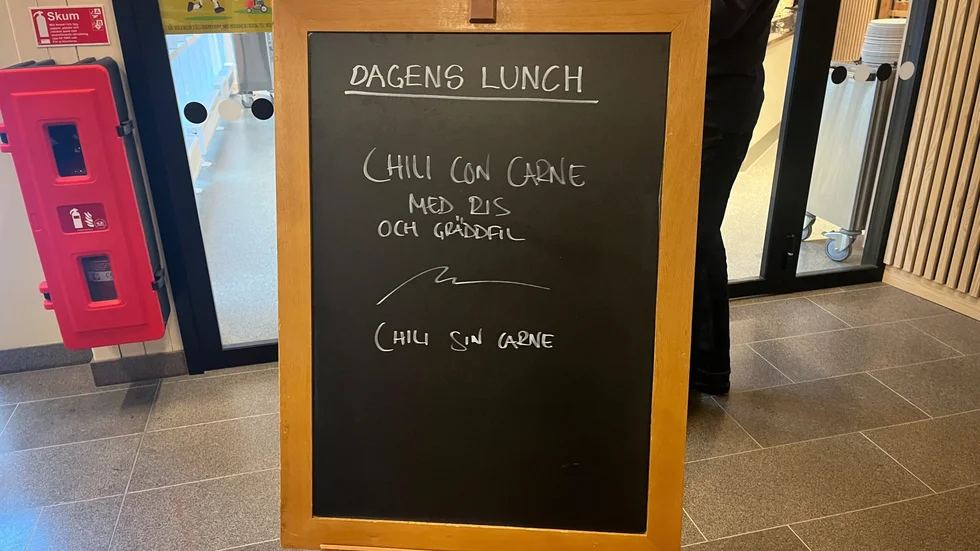 Skum
DAGENS LUNCH
CHILI CON CARNE
MED RIS
OCH GRÄDDFIL
CHILI SIN CARNE